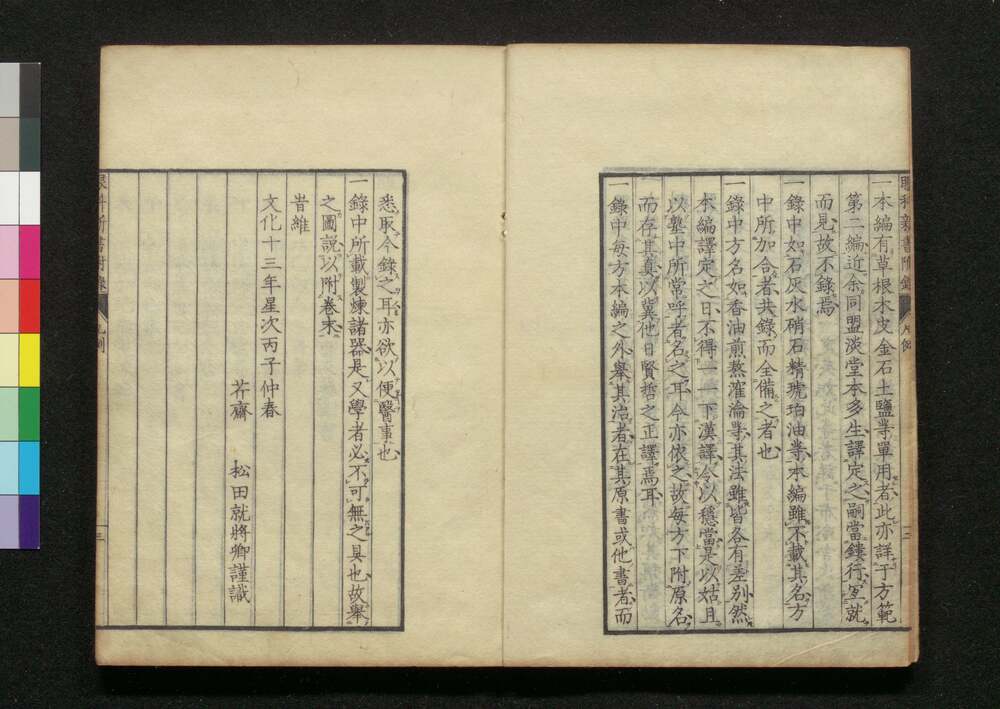 一本編有草根木皮金石土鹽等單用者此亦詳于方範
第二編近余同盟淡堂本多生譯定之嗣當鏤行宜就
而見故不錄焉
一錄中如石灰水硝石精琥珀油等本編雖不載其名方
中所加合者共錄而全備之者也
一錄中方名如香油煎熬滛瀹等其法雖皆各有差別然
本編譯定之日不得一一下漢譯令以穩當是以姑且
以塾中所常呼者名之耳今亦依之故每方下附原名
而存其真以冀他日賢哲之正譯焉耳
一錄中每方本編之外舉其治者在其原書或他書者而
悉取今錄之耳亦欲以便醫事也
一錄中所載製煉諸器是又學者必不可無之具也故舉
之圖說以附卷末
旹維
文化十三年星次丙子仲春
芥齋 松田就將卿謹識
眼科新書附錄 凡例 三